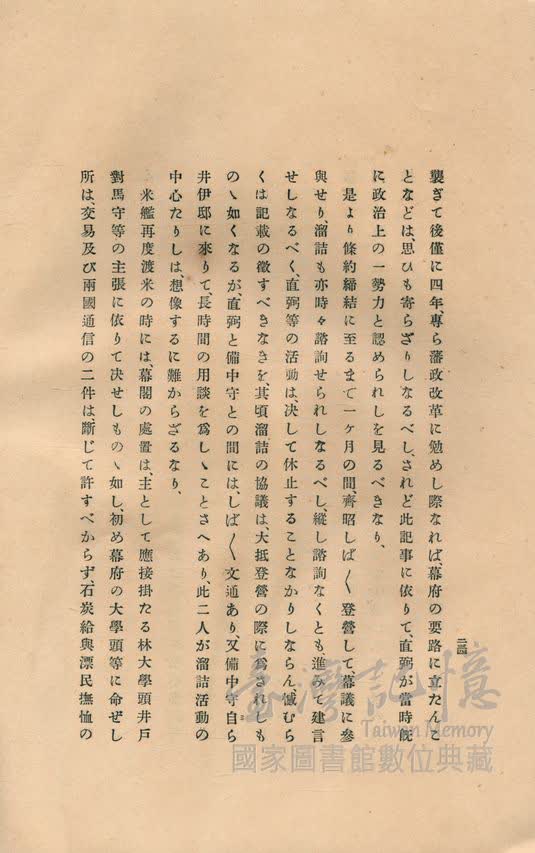 襲ぎて後僅に四年、專ら藩政改革に勉めし際なれば、幕府の要路に立たんこ
となどは、思ひも寄らざりしなるべし、されど此記事に依りて、直弼が當時既
に政治上の一勢力と認められしを見るべきなり、
是より條約締結に至るまで一ヶ月の間、齊昭しば〱登營して、幕議に參
與せり、溜詰も亦時々諮詢せられしなるべし、縱し諮詢なくとも、進みて建言
せしなるべく、直弼等の活動は、決して休止することなかりしならん、憾むら
くは記載の徵すべきなきを、其頃溜詰の協議は、大抵登營の際に爲されしも
のゝ如くなるが、直弼と備中守との間には、しば〱文通あり、又備中守自ら
井伊邸に來りて、長時間の用談を爲しゝことさへあり、此二人が溜詰活動の
中心たりしは、想像するに難からざるなり、
米艦再度渡米の時には幕閣の處置は、主として應接掛たる林大學頭井戸
對馬守等の主張に依りて決せしものゝ如し、初め幕府の大學頭等に命ぜし
所は、交易及び兩國通信の二件は、斷じて許すべからず、石炭給與漂民撫恤の
二四
臺灣記憶
Taiwan Memory
國家圖書館數位典藏